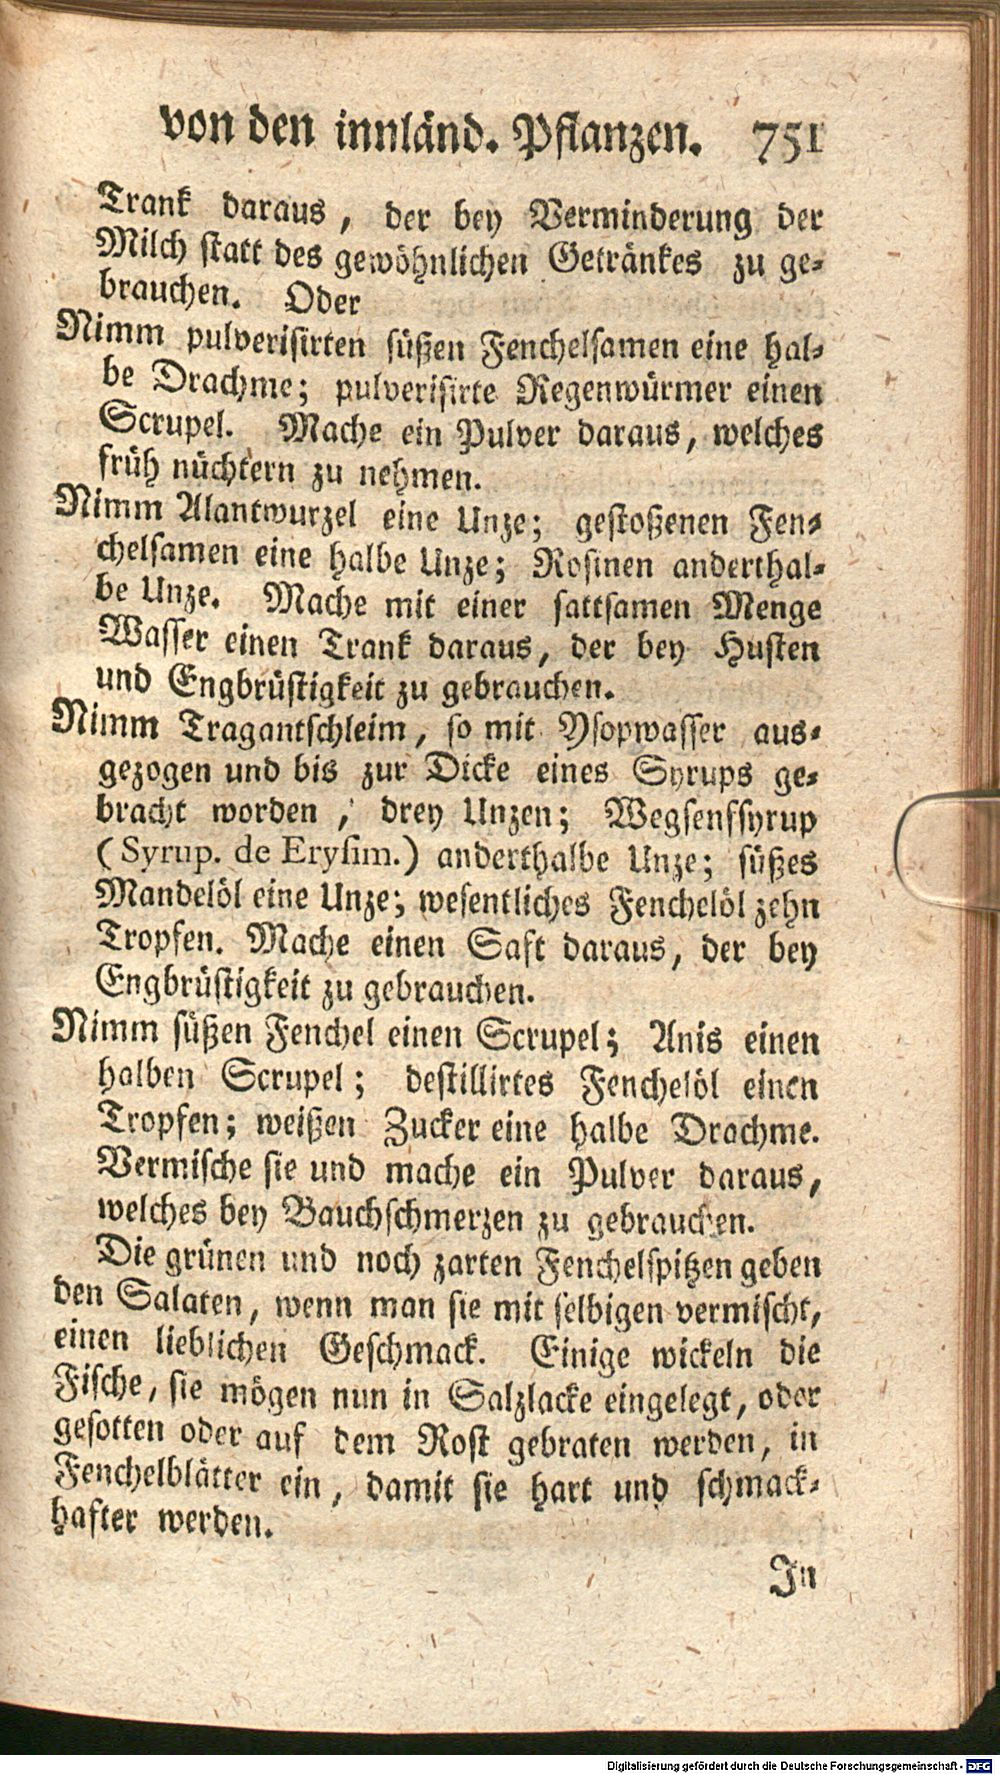 von den innländ. Pflanzen. 751
Trank daraus, der bey Verminderung der
Milch statt des gewöhnlichen Getränkes zu ge-
brauchen. Oder
Nimm pulverisirten süßen Fenchelsamen eine hal-
be Drachme; pulverisirte Regenwürmer einen
Scrupel. Mache ein Pulver daraus, welches
früh nüchtern zu nehmen.
Nimm Alantwurzel eine Unze; gestoßenen Fen-
chelsamen eine halbe Unze; Rosinen anderthal-
be Unze. Mache mit einer sattsamen Menge
Wasser einen Trank daraus, der bey Husten
und Engbrüstigkeit zu gebrauchen.
Nimm Tragantschleim, so mit Ysopwasser aus-
gezogen und bis zur Dicke eines Syrups ge-
bracht worden, drey Unzen; Wegsenfsyrup
(Syrup. de Erysim.) anderthalbe Unze; süßes
Mandelöl eine Unze; wesentliches Fenchelöl zehn
Tropfen. Mache einen Saft daraus, der bey
Engbrüstigkeit zu gebrauchen.
Nimm süßen Fenchel einen Scrupel; Anis einen
halben Scrupel; destillirtes Fenchelöl einen
Tropfen; weißen Zucker eine halbe Drachme.
Vermische sie und mache ein Pulver daraus,
welches bey Bauchschmerzen zu gebrauchen.
Die grünen und noch zarten Fenchelspitzen geben
den Salaten, wenn man sie mit selbigen vermischt,
einen lieblichen Geschmack. Einige wickeln die
Fische, sie mögen nun in Salzlacke eingelegt, oder
gesotten oder auf dem Rost gebraten werden, in
Fenchelblätter ein, damit sie hart und schmack-
hafter werden.
In
Digitalisierung gefördert durch die Deutsche Forschungsgemeinschaft - DFG